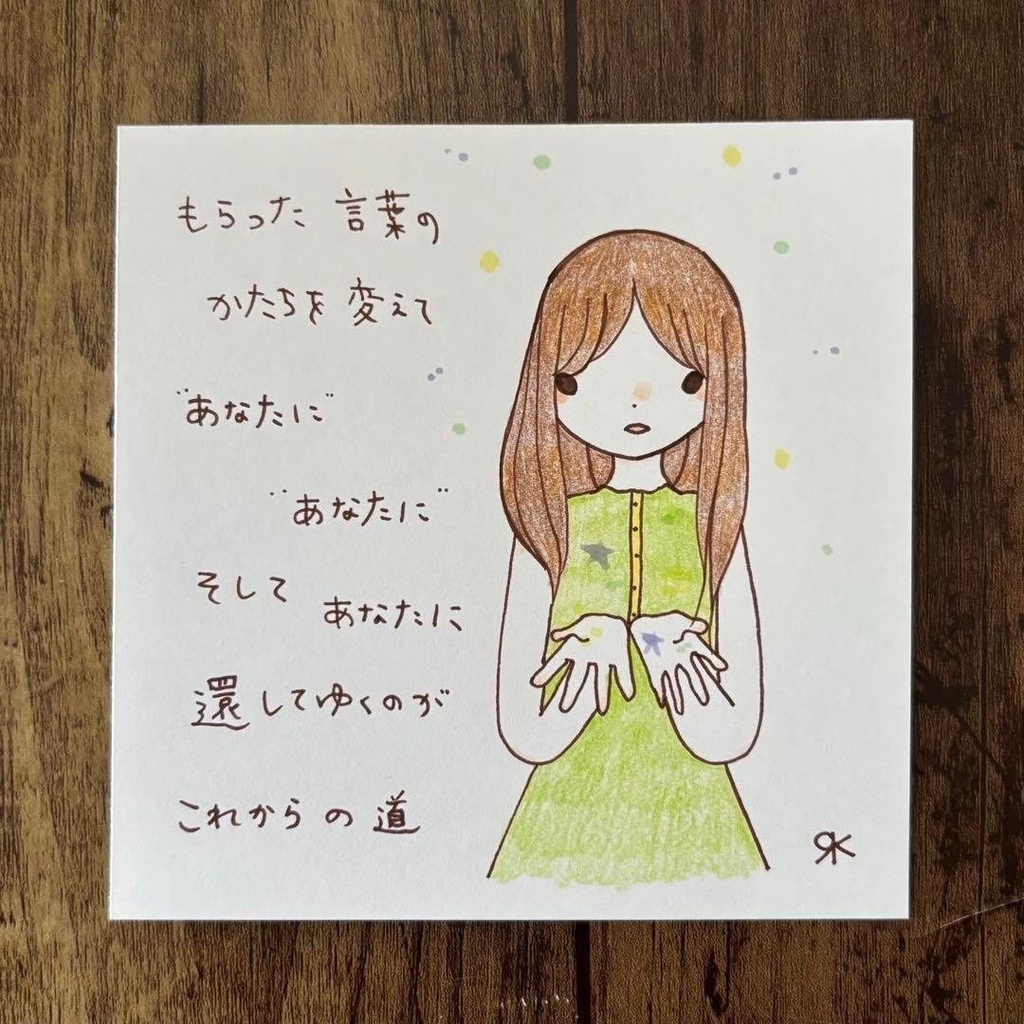 もらった 言葉の
かたちを 変えて
"あなたに"
"あなたに"
そして
あなたに
還してゆくのが
これからの道